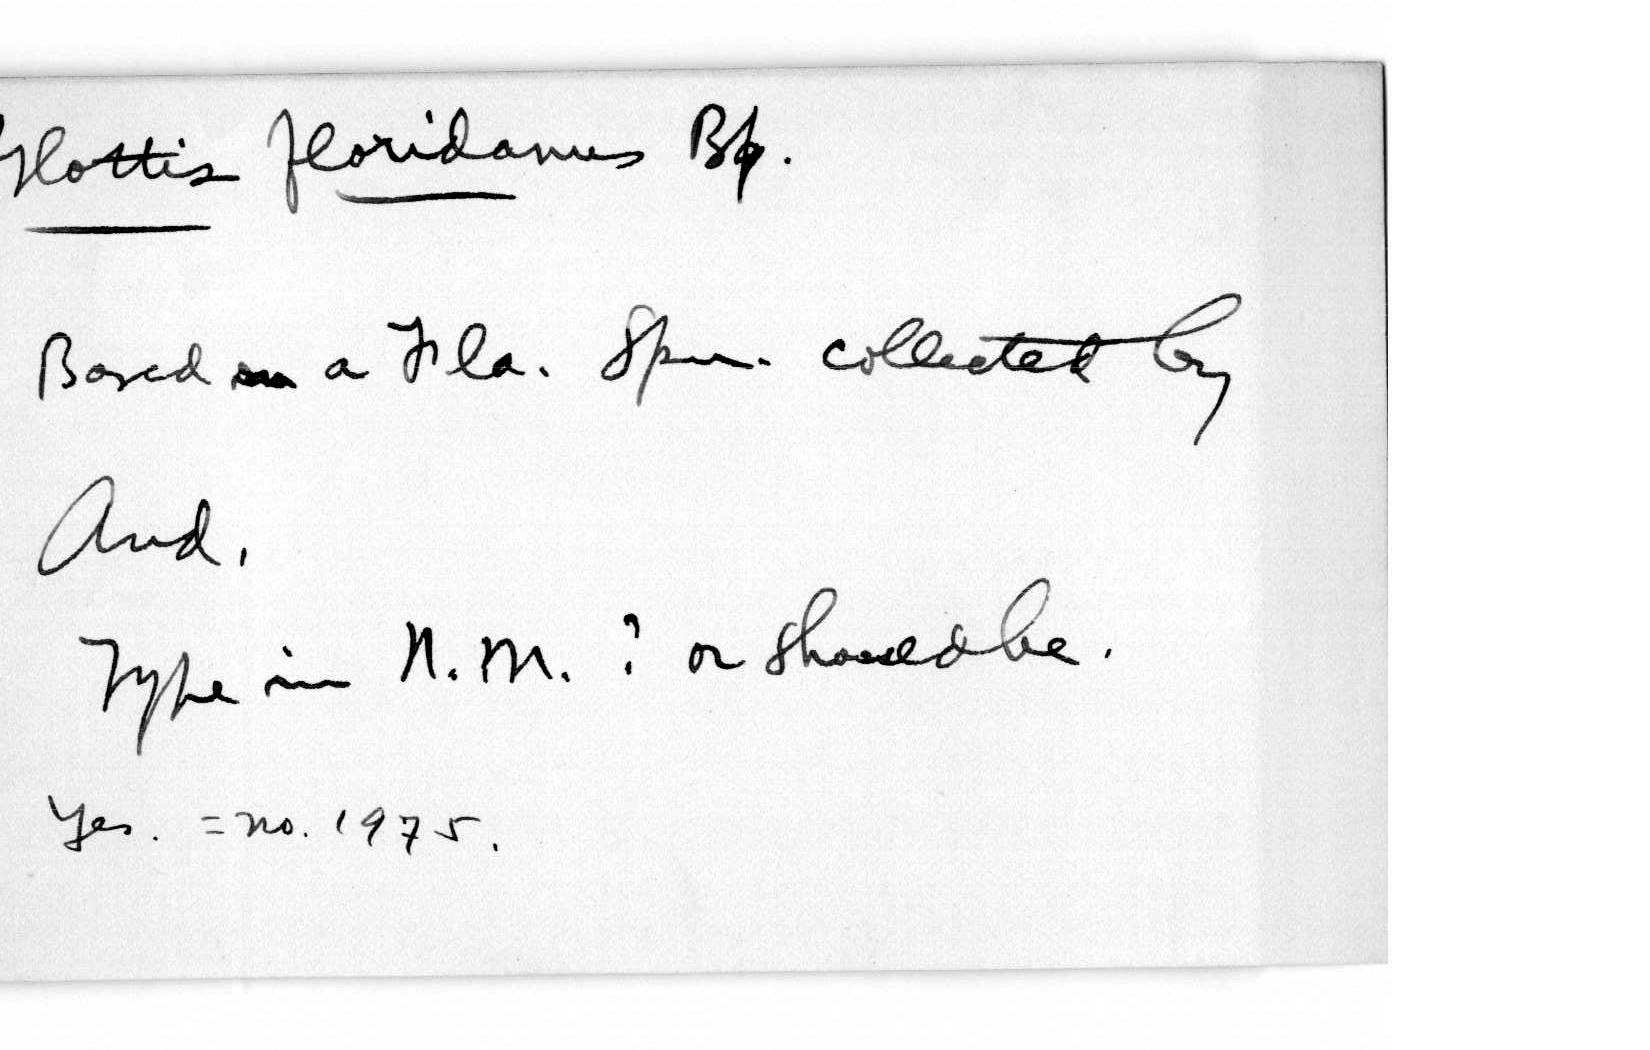 Glottis floridanus Bp.
Based on a Fla. Spm. collected by
Aud.
Type in N.M. ? or should be.
Yes. = no. 1975.